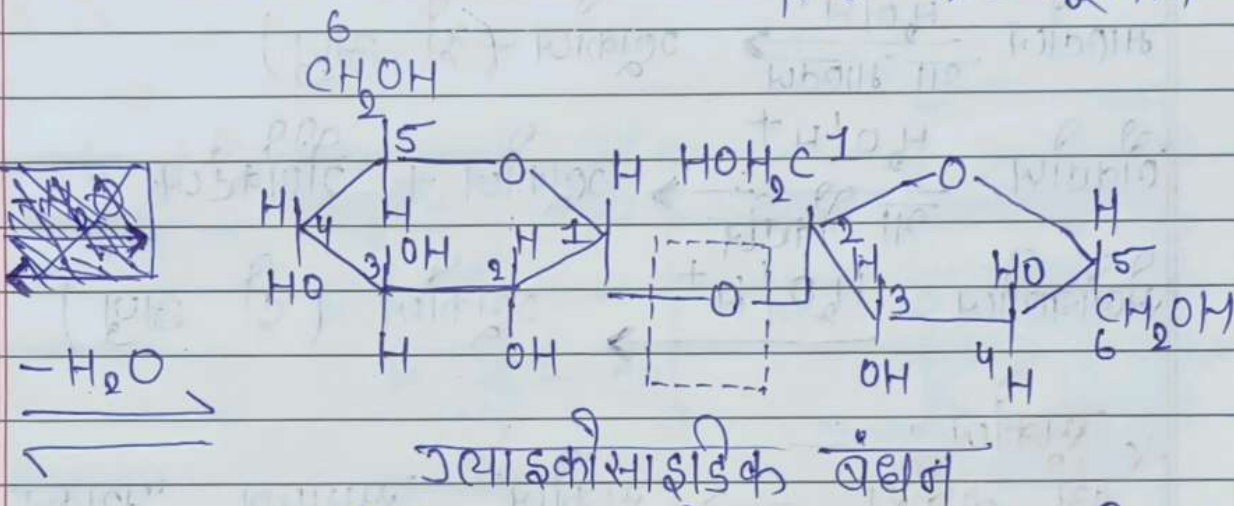 6
CH2OH
5 O H HOH2C 1 O
H 4 H OH H 1 2 H HO H 5
HO 3 2 O 3 CH2OH
-H2O H OH OH 4 H 6
ग्लाइकोसाइडिक बंधन